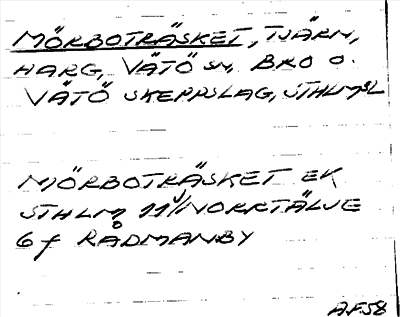 MÖRBOTRÄSKET, TJÄRN,
HARG, VÄTÖ SN, BRO O.
VÄTÖ SKEPPSLAG, STHLMS L
MÖRBOTRÄSKET EK
STHLM 11J/NORRTÄLJE
6f RÅDMANBY
AF58